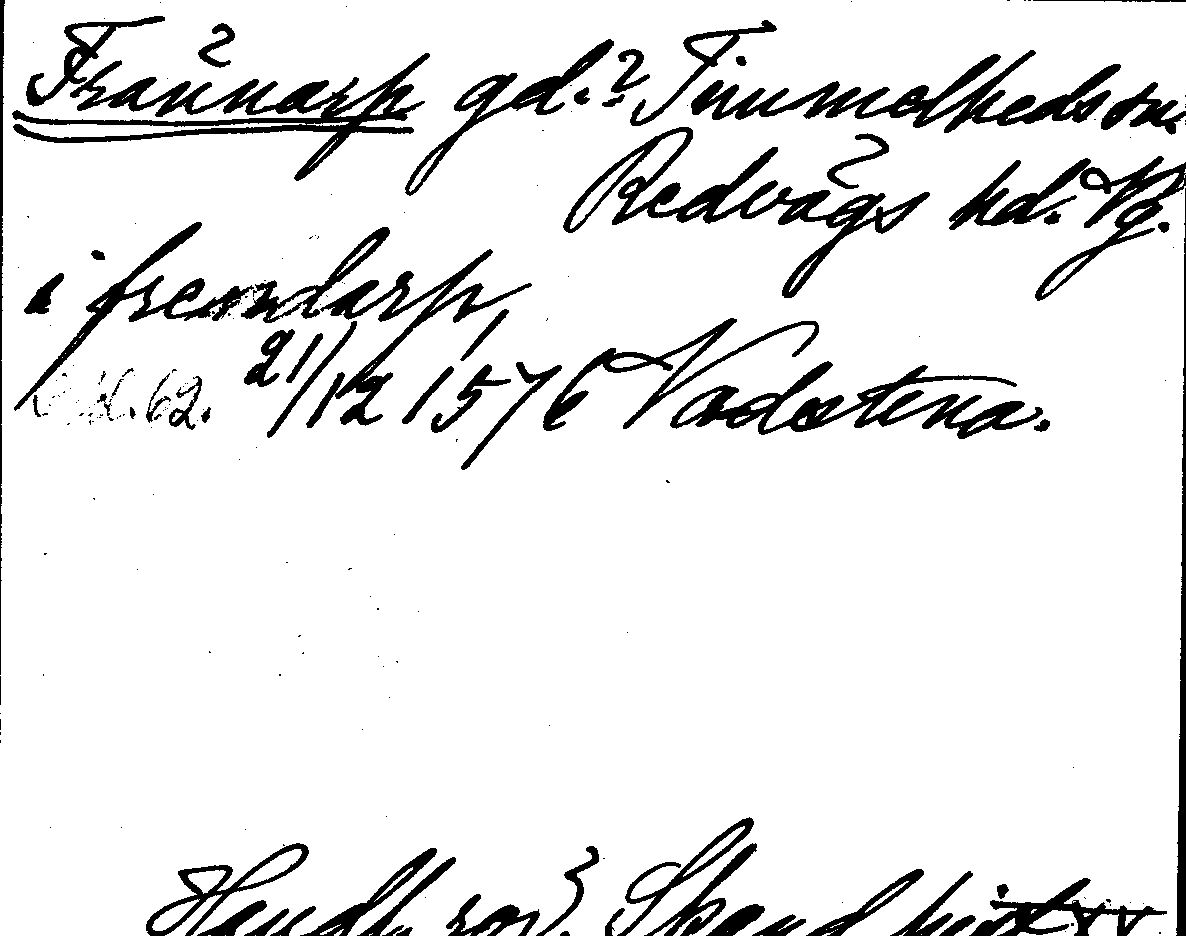 Frännarp gd.? Timmelheds sn.
Redvägs hd. Vg.
i fremdarp,
Sid. 62. 21/12 1576 Vadstena.
Handl. rör. Skand. hist. XX